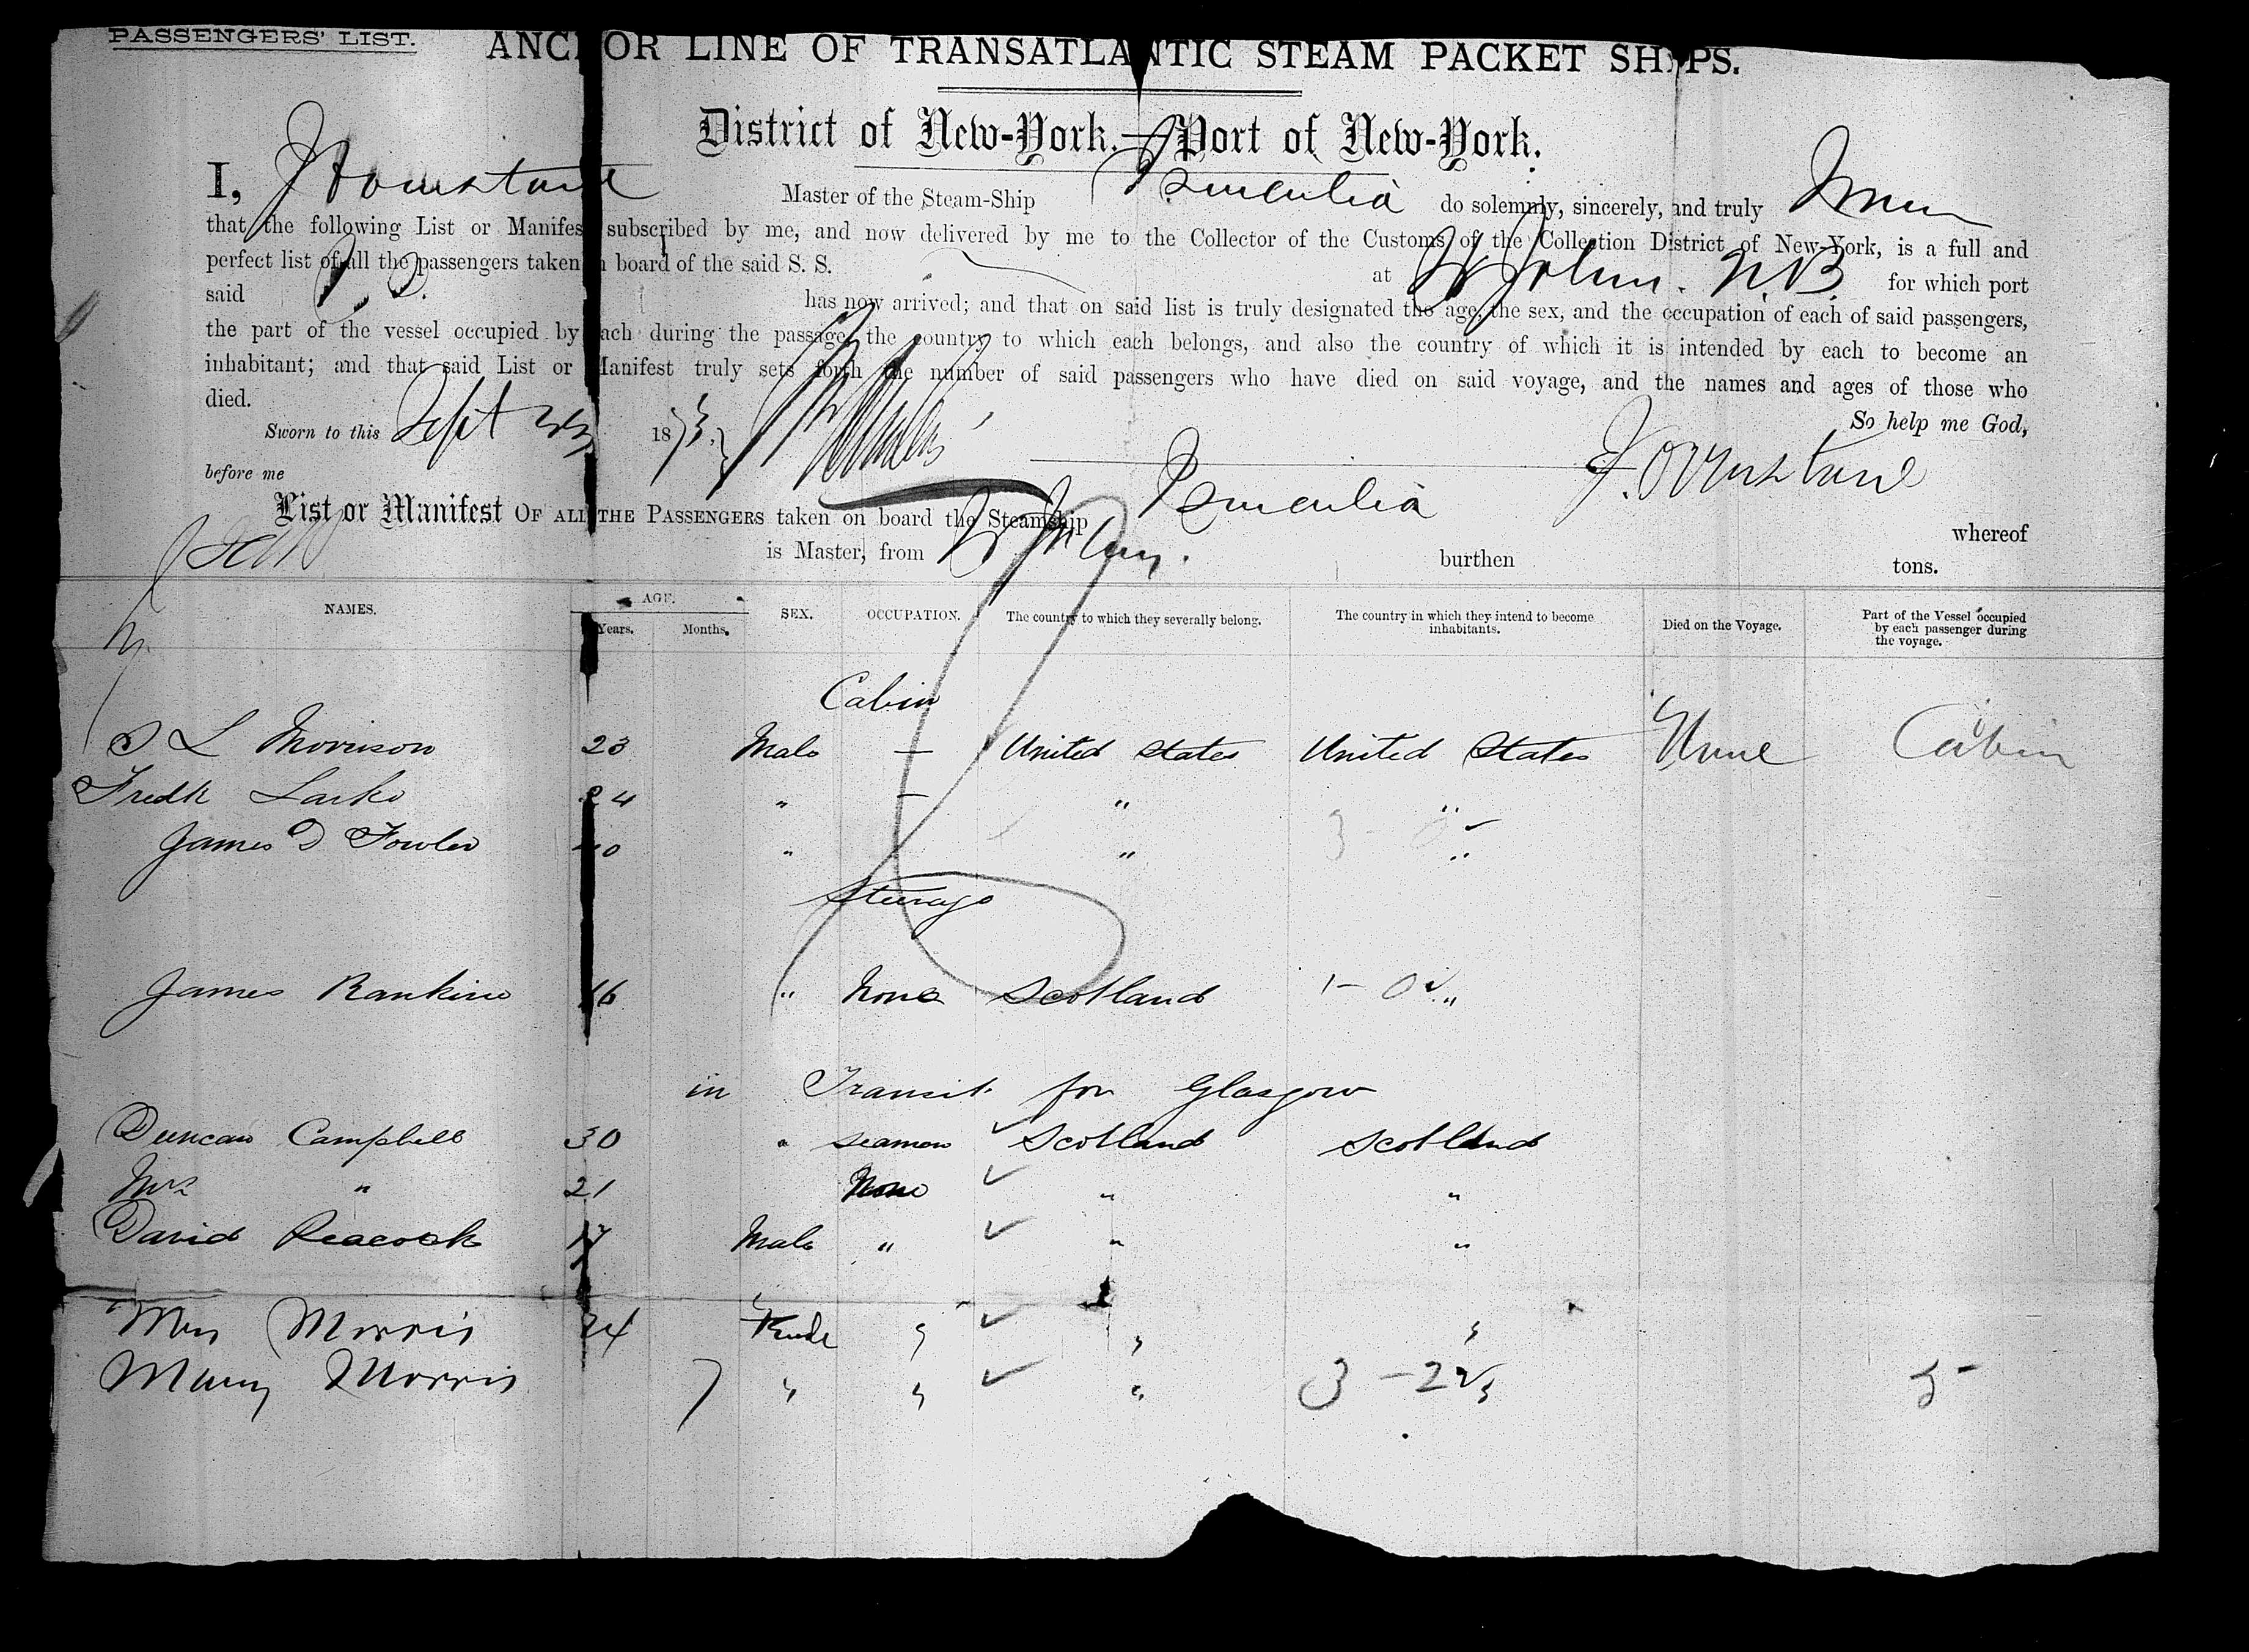 PASSENGERS' LIST.
ANCHOR LINE OF TRANSATLANTIC STEAM PACKET SHIPS.
District of New-York.—Port of New-York.
I, Master of the Steam-Ship do solemnly, sincerely, and truly
that the following List or Manifest subscribed by me, and now delivered by me to the Collector of the Customs of the Collection District of New-York, is a full and
perfect list of all the passengers taken on board of the said S. S. at St John. N.B. for which port
said has now arrived; and that on said list is truly designated the age, the sex, and the occupation of each of said passengers,
the part of the vessel occupied by each during the passage, the country to which each belongs, and also the country of which it is intended by each to become an
inhabitant; and that said List or Manifest truly sets forth the number of said passengers who have died on said voyage, and the names and ages of those who
died. So help me God,
Sworn to this Sept 1873,
before me
List or Manifest OF ALL THE PASSENGERS taken on board the Steamship whereof
is Master, from St John. burthen tons.
NAMES. AGE. Years. Months. SEX. OCCUPATION. The country to which they severally belong. The country in which they intend to become inhabitants. Died on the Voyage. Part of the Vessel occupied by each passenger during the voyage.
Cabin
L Morrison 23 Male — United States United States None Cabin
Fredk 24 " — " "
James D Fowler " " 3 - 0 "
Steerage
James Rankine 16 " None Scotland 1 - 0 "
in Transit for Glasgow
Duncan Campbell 30 " Seaman Scotland Scotland
Mrs " 21 None " "
David Peacock 17 Male " " "
Mrs Morris 24 " " "
Mary Morris 7 " " " 3 - 2 " 5-